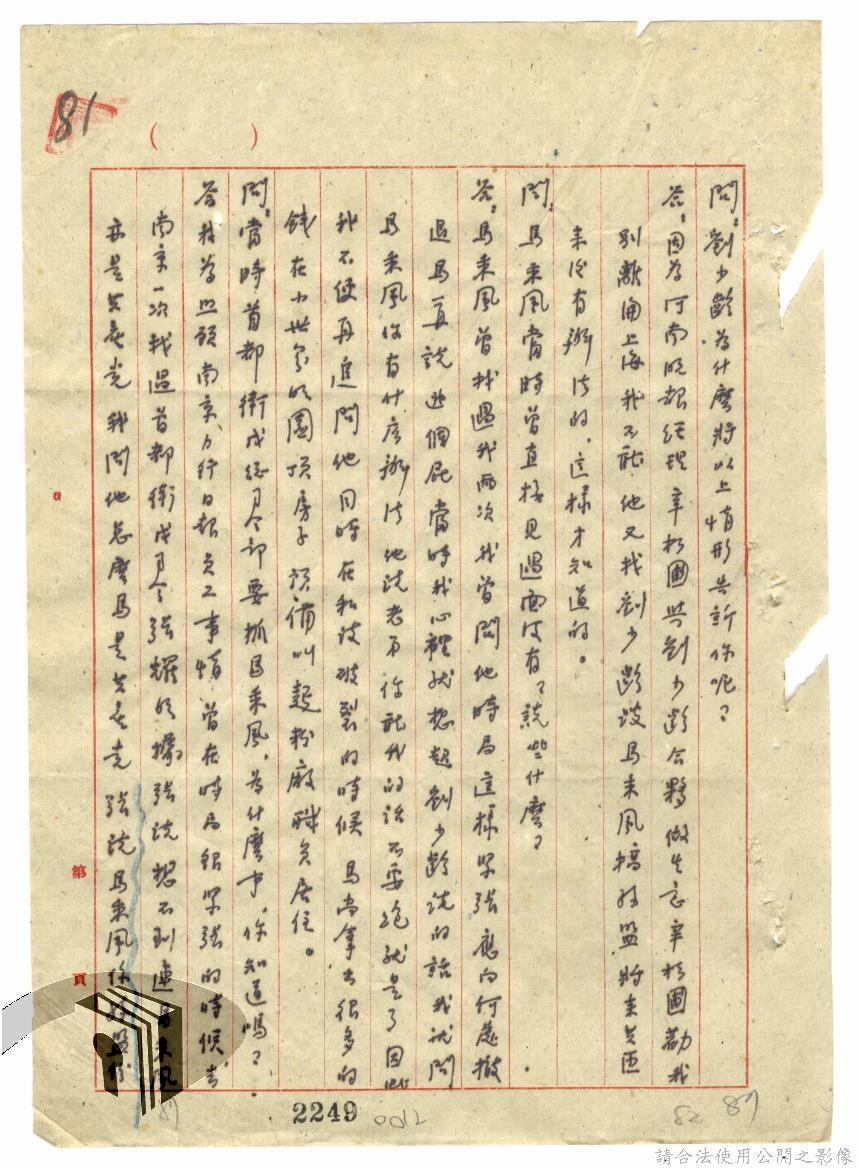 81
（　　）
問：劉少齡為什麼將以上情形告訴你呢？
答：因為河南晚報經理辛 圃與劉少齡合夥做生意辛 圃勸我
別離開上海我不能他又找劉少齡說馬乘風搞 盟將來共匪
來後有辦法的，這樣才知道的。
問：馬乘風當時曾直接見過面沒有？說些什麼？
答：馬乘風曾找過我兩次我曾問他時局這樣緊張應向何處撤
退馬 說 個屁當時我心裡就想起劉少齡說的話我就問
馬乘風你有什麼辦法他說老弟你聽我的話不要跑就是了因此
我不便再追問他同時在和談破裂的時候馬尚拿出很多的
錢在 園頂房子預備叫 粉廠職員居住。
問：當時首都衛戍總司令部要抓馬乘風，為什麼事，你知道嗎？
答：我為照顧南京力行日報員工事情曾在時局很緊張的時候去
南京一次找過首都衛戍司令張耀明據張說想不到連馬乘風
亦是共產党我問他怎麼馬是共產党張說馬乘風係
第　頁
2249
0012
82
87
請合法使用公開之影像